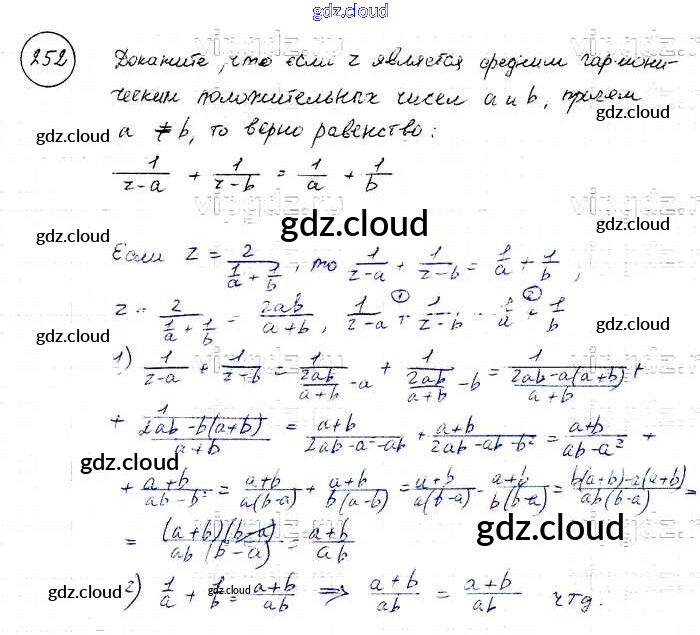 gdz.cloud
252 Докажите, что если z является средним гармони-
ческим положительных чисел a и b, причем
a ≠ b, то верно равенство:
gdz.cloud
gdz.cloud
gdz.cloud
1/(z-a) + 1/(z-b) = 1/a + 1/b
gdz.cloud
gdz.cloud
gdz.cloud
Если z = 2/(1/a + 1/b), то 1/(z-a) + 1/(z-b) = 1/a + 1/b,
z = 2/(1/a + 1/b) = 2ab/(a+b), 1/(z-a) + ① 1/(z-b) = 1/a + ② 1/b
gdz.cloud
gdz.cloud
1) 1/(z-a) + 1/(z-b) = 1/(2ab/(a+b) - a) + 1/(2ab/(a+b) - b) = 1/((2ab-a(a+b))/(a+b)) +
+ 1/((2ab-b(a+b))/(a+b)) = (a+b)/(2ab-a²-ab) + (a+b)/(2ab-ab-b²) = (a+b)/(ab-a²) +
gdz.cloud
gdz.cloud
+ (a+b)/(ab-b²) = (a+b)/(a(b-a)) + (a+b)/(b(a-b)) = (a+b)/(a(b-a)) - (a+b)/(b(b-a)) = (b(a+b)-a(a+b))/(ab(b-a)) =
= (a+b)(b-a)/(ab(b-a)) = (a+b)/(ab)
gdz.cloud
gdz.cloud
2) 1/a + 1/b = (a+b)/(ab) ⇒ (a+b)/(ab) = (a+b)/(ab) чтд.
gdz.cloud